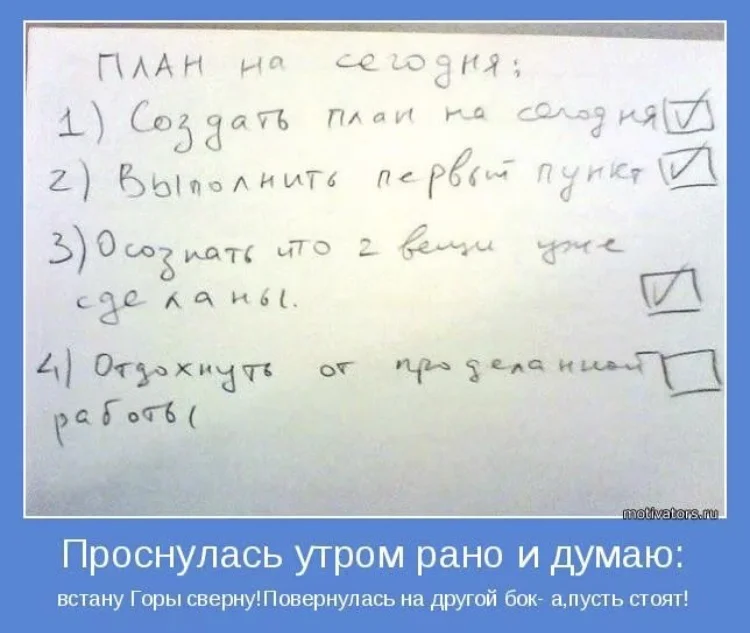 ПЛАН на сегодня:
1) Создать план на сегодня
2) Выполнить первый пункт
3) Осознать что 2 вещи уже
сделаны.
4) Отдохнуть от проделанной
работы
motivators.ru
Проснулась утром рано и думаю:
встану Горы сверну!Повернулась на другой бок- а,пусть стоят!